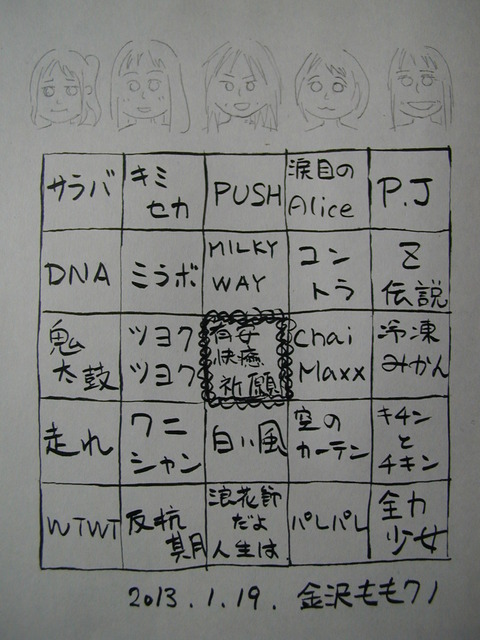 サラバ
キミ
セカ
PUSH
涙目の
Alice
P.J
DNA
ミラボ
MILKY
WAY
コン
トラ
Z
伝説
鬼
太鼓
ツヨク
ツヨク
有安
快癒
祈願
Chai
Maxx
冷凍
みかん
走れ
ワニ
シャン
白い風
空の
カーテン
キチン
と
チキン
WTWT
反抗
期
浪花節
だよ
人生は
パレパレ
全力
少女
2013.1.19. 金沢ももクノ